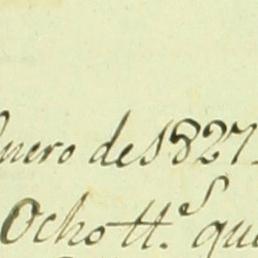 Enero de 1827
Ocho tt.s que